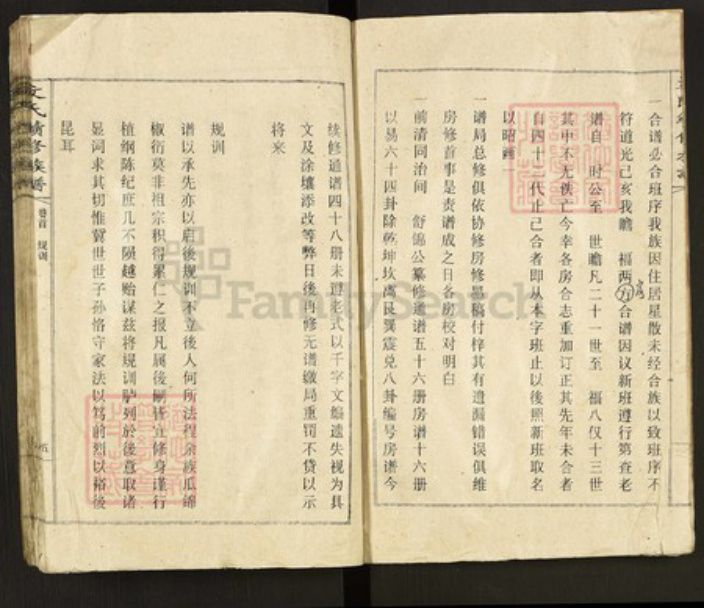 一合谱必合班序我族因住居星散未经合族以致班序不
符道光己亥我瞻 福两房合谱因议新班遵行第查老
谱自 时公至 世瞻凡二十一世至 福八仅十三世
其中不无佚亡今幸各房合志重加订正其先年未合者
自四十一代止己合者即从本字班止以後照新班取名
以昭画一
一谱局总修俱依协修房修墨稿付梓其有遗漏错误俱维
房修首事是责谱成之日各房校对明白
一前清同治间 舒锦公纂修通谱五十六册房谱十六册
以易六十四卦除乾坤坎离艮巽震兑八卦编号房谱今
续修通谱四十八册未遵老式以千字文编遗失视为具
文及涂壤添改等弊日後再修无谱缴局重罚不贷以示
将来
规训
谱以承先亦以启後规训不立後人何所法程余族瓜绵
椒衍莫非祖宗积得累仁之报凡属後嗣皆宜修身谨行
植纲陈纪庶几不陨越贻谋兹将规训胪列於後意取诸
显词求其切惟冀世世子孙恪守家法以笃前烈以裕後
昆耳
文氏续修族谱
卷首 规训
FamilySearch